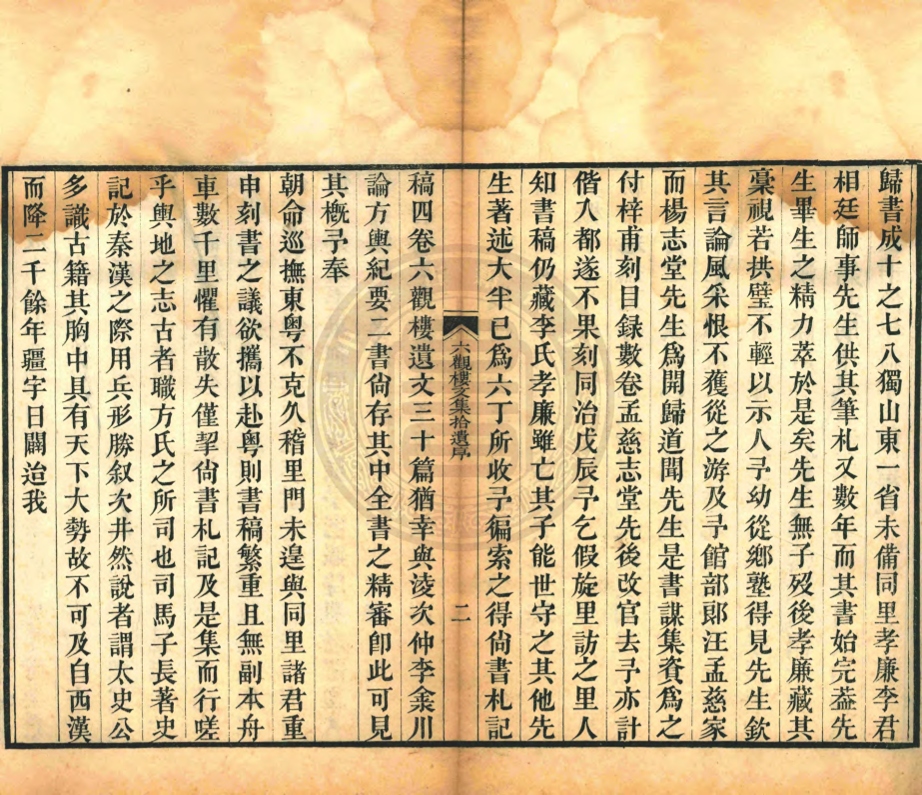 歸書成十之七八獨山東一省未備同里孝廉李君
相廷師事先生供其筆札又數年而其書始完葢先
生畢生之精力萃於是矣先生無子歿後孝廉藏其
稾視若拱璧不輕以示人予幼從鄉塾得見先生欽
其言論風采恨不獲從之游及予館部郎汪孟慈家
而楊志堂先生爲開歸道聞先生是書謀集資爲之
付梓甫刻目録數卷孟慈志堂先後改官去予亦計
偕入都遂不果刻同治戊辰予乞假旋里訪之里人
知書稿仍藏李氏孝廉雖亡其子能世守之其他先
生著述大半已爲六丁所收予徧索之得尙書札記
六觀樓文集拾遺序
二
稿四卷六觀樓遺文三十篇猶幸與淩次仲李尙川
論方輿紀要二書尙存其中全書之精審卽此可見
其槪予奉
朝命巡撫東粤不克久稽里門未遑與同里諸君重
申刻書之議欲攜以赴粤則書稿繁重且無副本舟
車數千里懼有散失僅挈尙書札記及是集而行嗟
乎輿地之志古者職方氏之所司也司馬子長著史
記於秦漢之際用兵形勝叙次井然說者謂太史公
多識古籍其胸中具有天下大勢故不可及自西漢
而降二千餘年疆宇日闢迨我